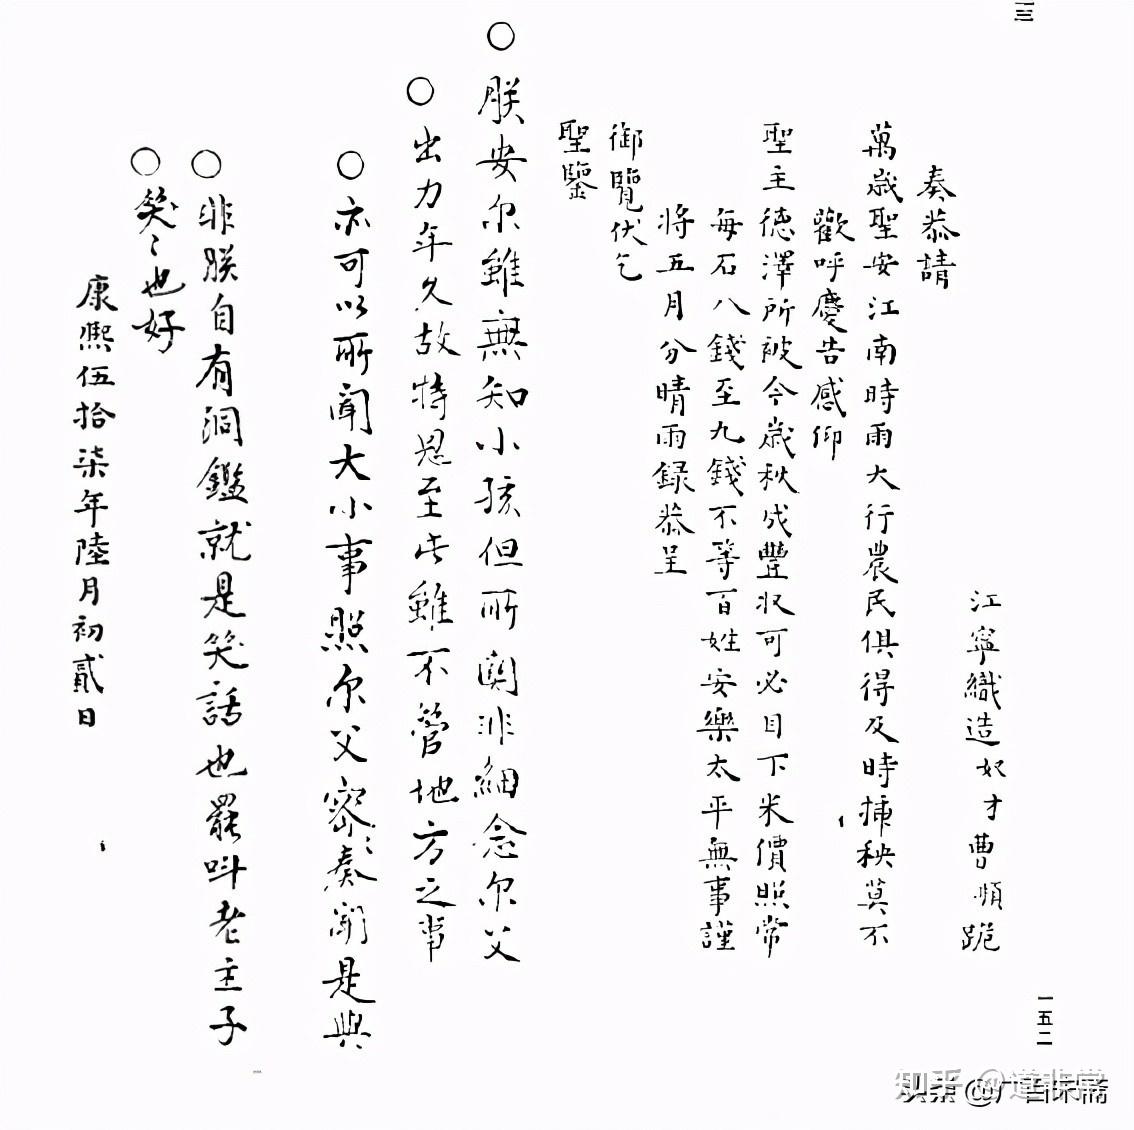 三
江寧織造奴才曹頫跪
奏恭請
萬歲聖安江南時雨大行農民俱得及時插秧莫不
歡呼慶告感仰
聖主德澤所被今歲秋成豐收可必目下米價照常
每石八錢至九錢不等百姓安樂太平無事謹
將五月分晴雨録恭呈
御覽伏乞
聖鑒
○朕安尔雖無知小孩但所関非細念尔父
○出力年久故特恩至此雖不管地方之事
○亦可以所聞大小事照尔父密密奏聞是與
○非朕自有洞鑑就是笑話也罷叫老主子
○笑笑也好
康熙伍拾柒年陸月初貳日
一五二
知乎 @道非常
头条 @广百宋斋